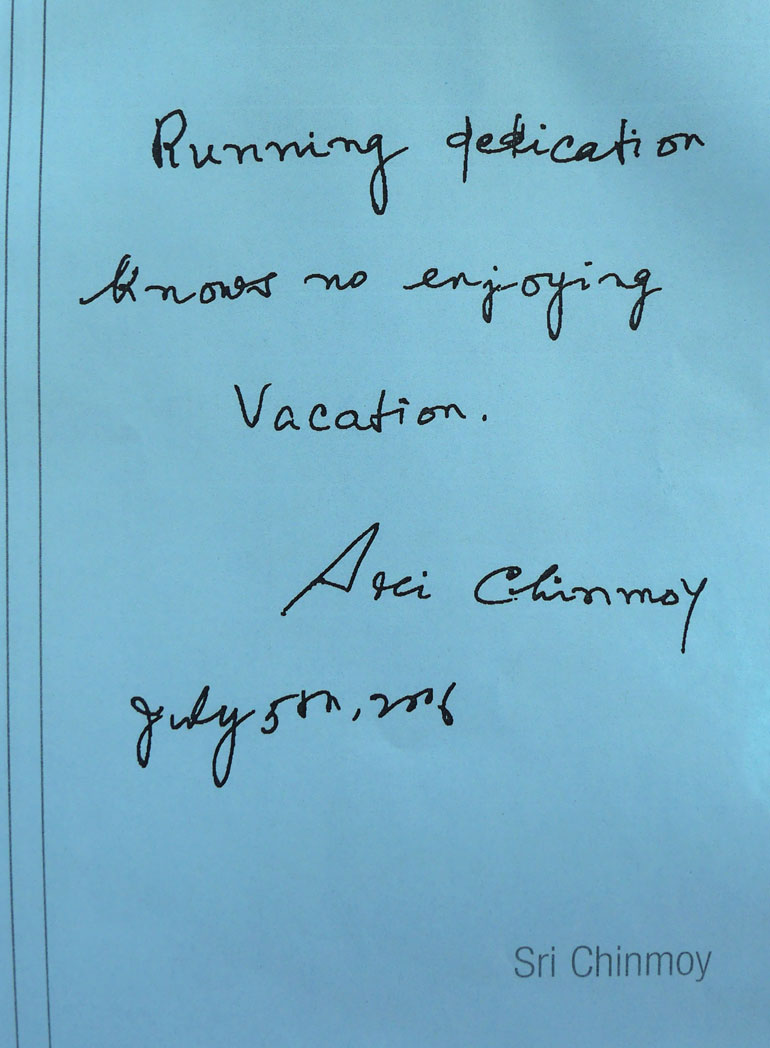 Running dedication
knows no enjoying
Vacation.
Sri Chinmoy
July 5th, 2006
Sri Chinmoy